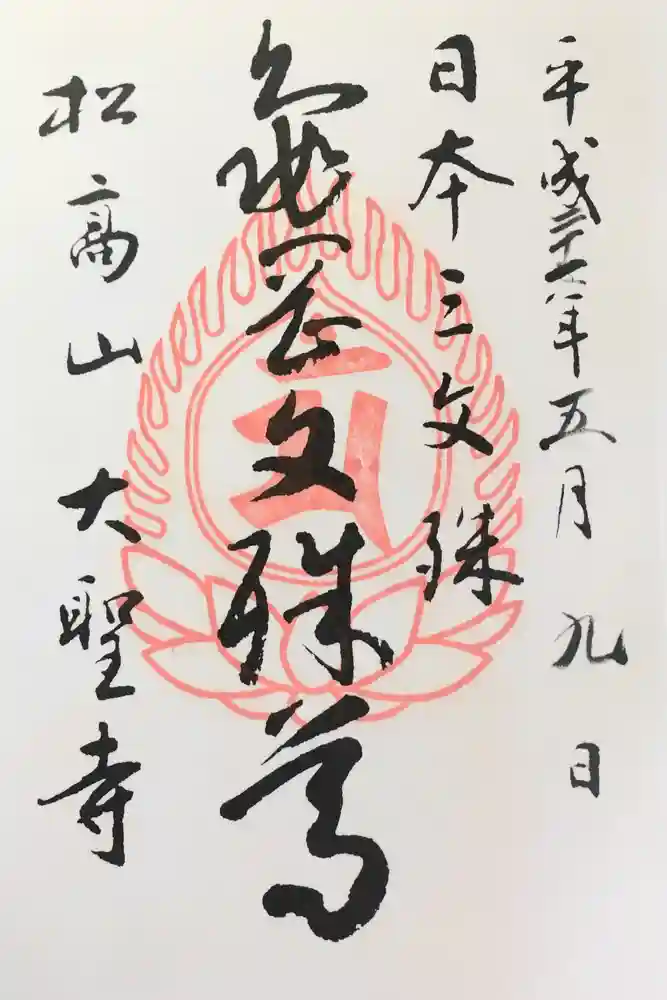 平成二十六年五月九日
日本三文殊
龜岡文殊尊
松高山大聖寺